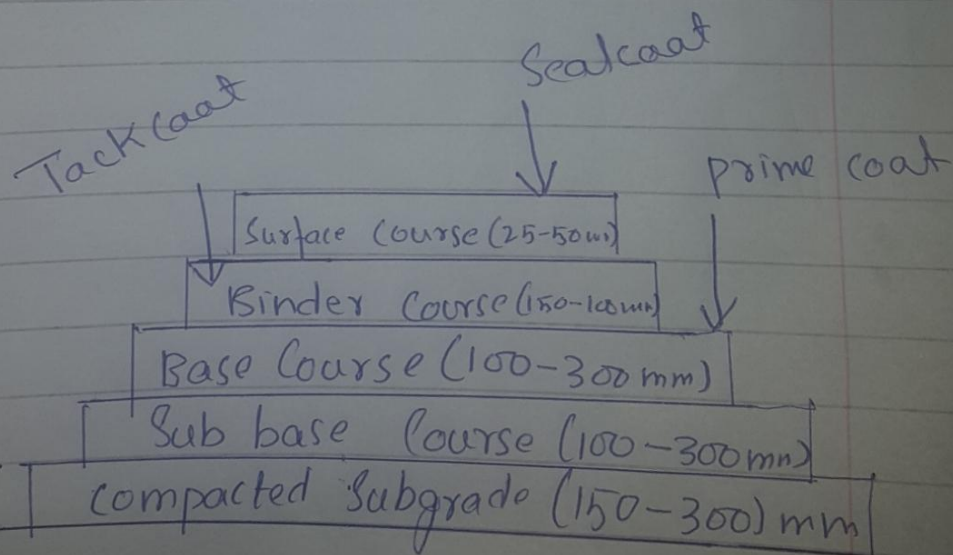 Sealcoat
Tackcoat
prime coat
Surface Course (25-50mm)
Binder Course (150-100mm)
Base Course (100-300mm)
Sub base Course (100-300mm)
Compacted Subgrade (150-300) mm